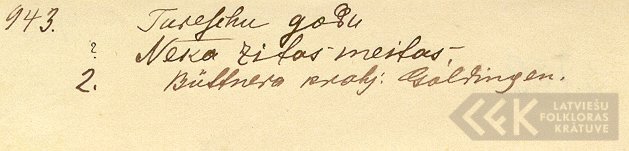 943. Tureschu godu
? Neka zitas meitas,
2. Büttnera krahj. Goldingen.
LATVIEŠU
FOLKLORAS
KRĀTUVE